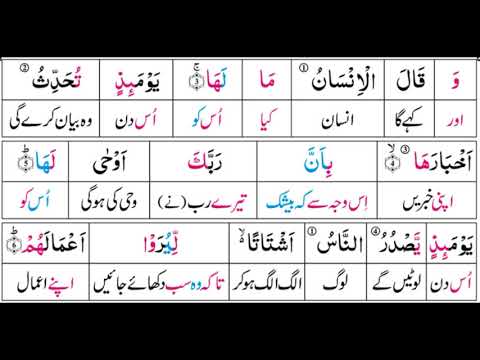 وَ قَالَ الْاِنْسَانُ ① مَا لَهَا ۚ ③ يَوْمَىِٕذٍ تُحَدِّثُ ②
اور کہے گا انسان کیا اُس کو اُس دن وہ بیان کرے گی
اَخْبَارَهَا ③ ۙ ④ بِاَنَّ رَبَّكَ اَوْحٰى لَهَا ؕ ⑤
اپنی خبریں اِس وجہ سے کہ بیشک تیرے رب (نے) وحی کی ہوگی اُس کو
يَوْمَىِٕذٍ يَّصْدُرُ ④ النَّاسُ ① اَشْتَاتًا ۙ لِّيُرَوْا اَعْمَالَهُمْ ؕ ⑥
اُس دن لوٹیں گے لوگ الگ الگ ہوکر تاکہ وہ سب دکھائے جائیں اپنے اعمال